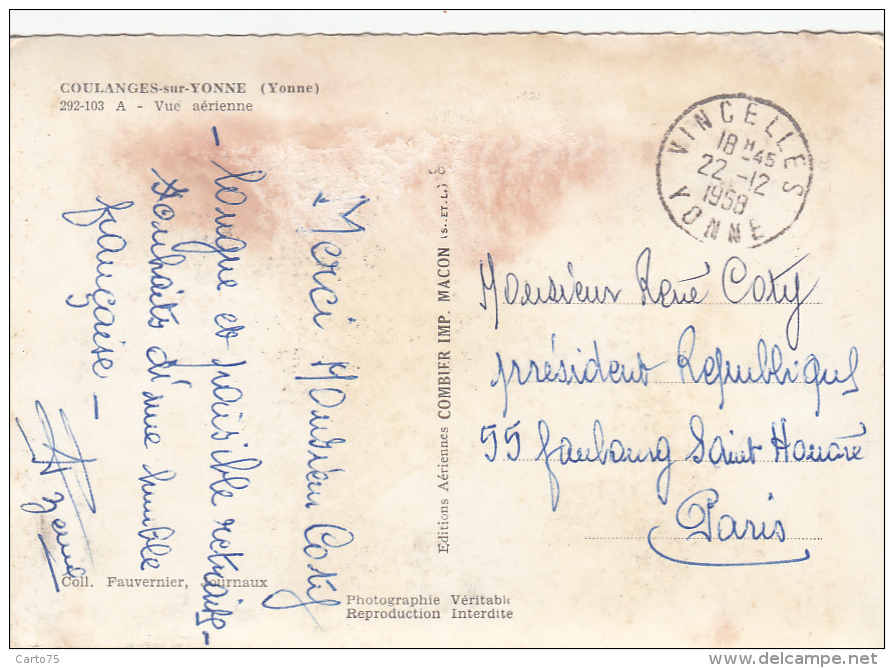 COULANGES-sur-YONNE (Yonne)
292-103 A - Vue aérienne
VINCELLES
18 H -45
22 -12
1958
YONNE
Merci Monsieur Coty
- longue et paisible retraite -
Souhaits d'une humble
française -
Coll. Fauvernier, Journaux
Editions Aériennes COMBIER IMP. MACON (S.-ET-L.)
Monsieur René Coty
président Republique
55 faubourg Saint Honoré
Paris
Photographie Véritable
Reproduction Interdite
Carto75